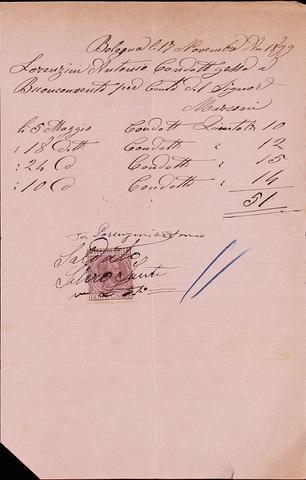 Bologna li 17 Novembre 1899
Lorenzini Antonio Condott gesso a
Buonconvento per Conto del Signor
Marconi
li 5 Maggio Condotti Quintali 10
: 18 dtt Condotti " 12
: 24 d Condotti " 15
: 10 d Condotti " 14
51
per Lorenzini Antonio
Saldato